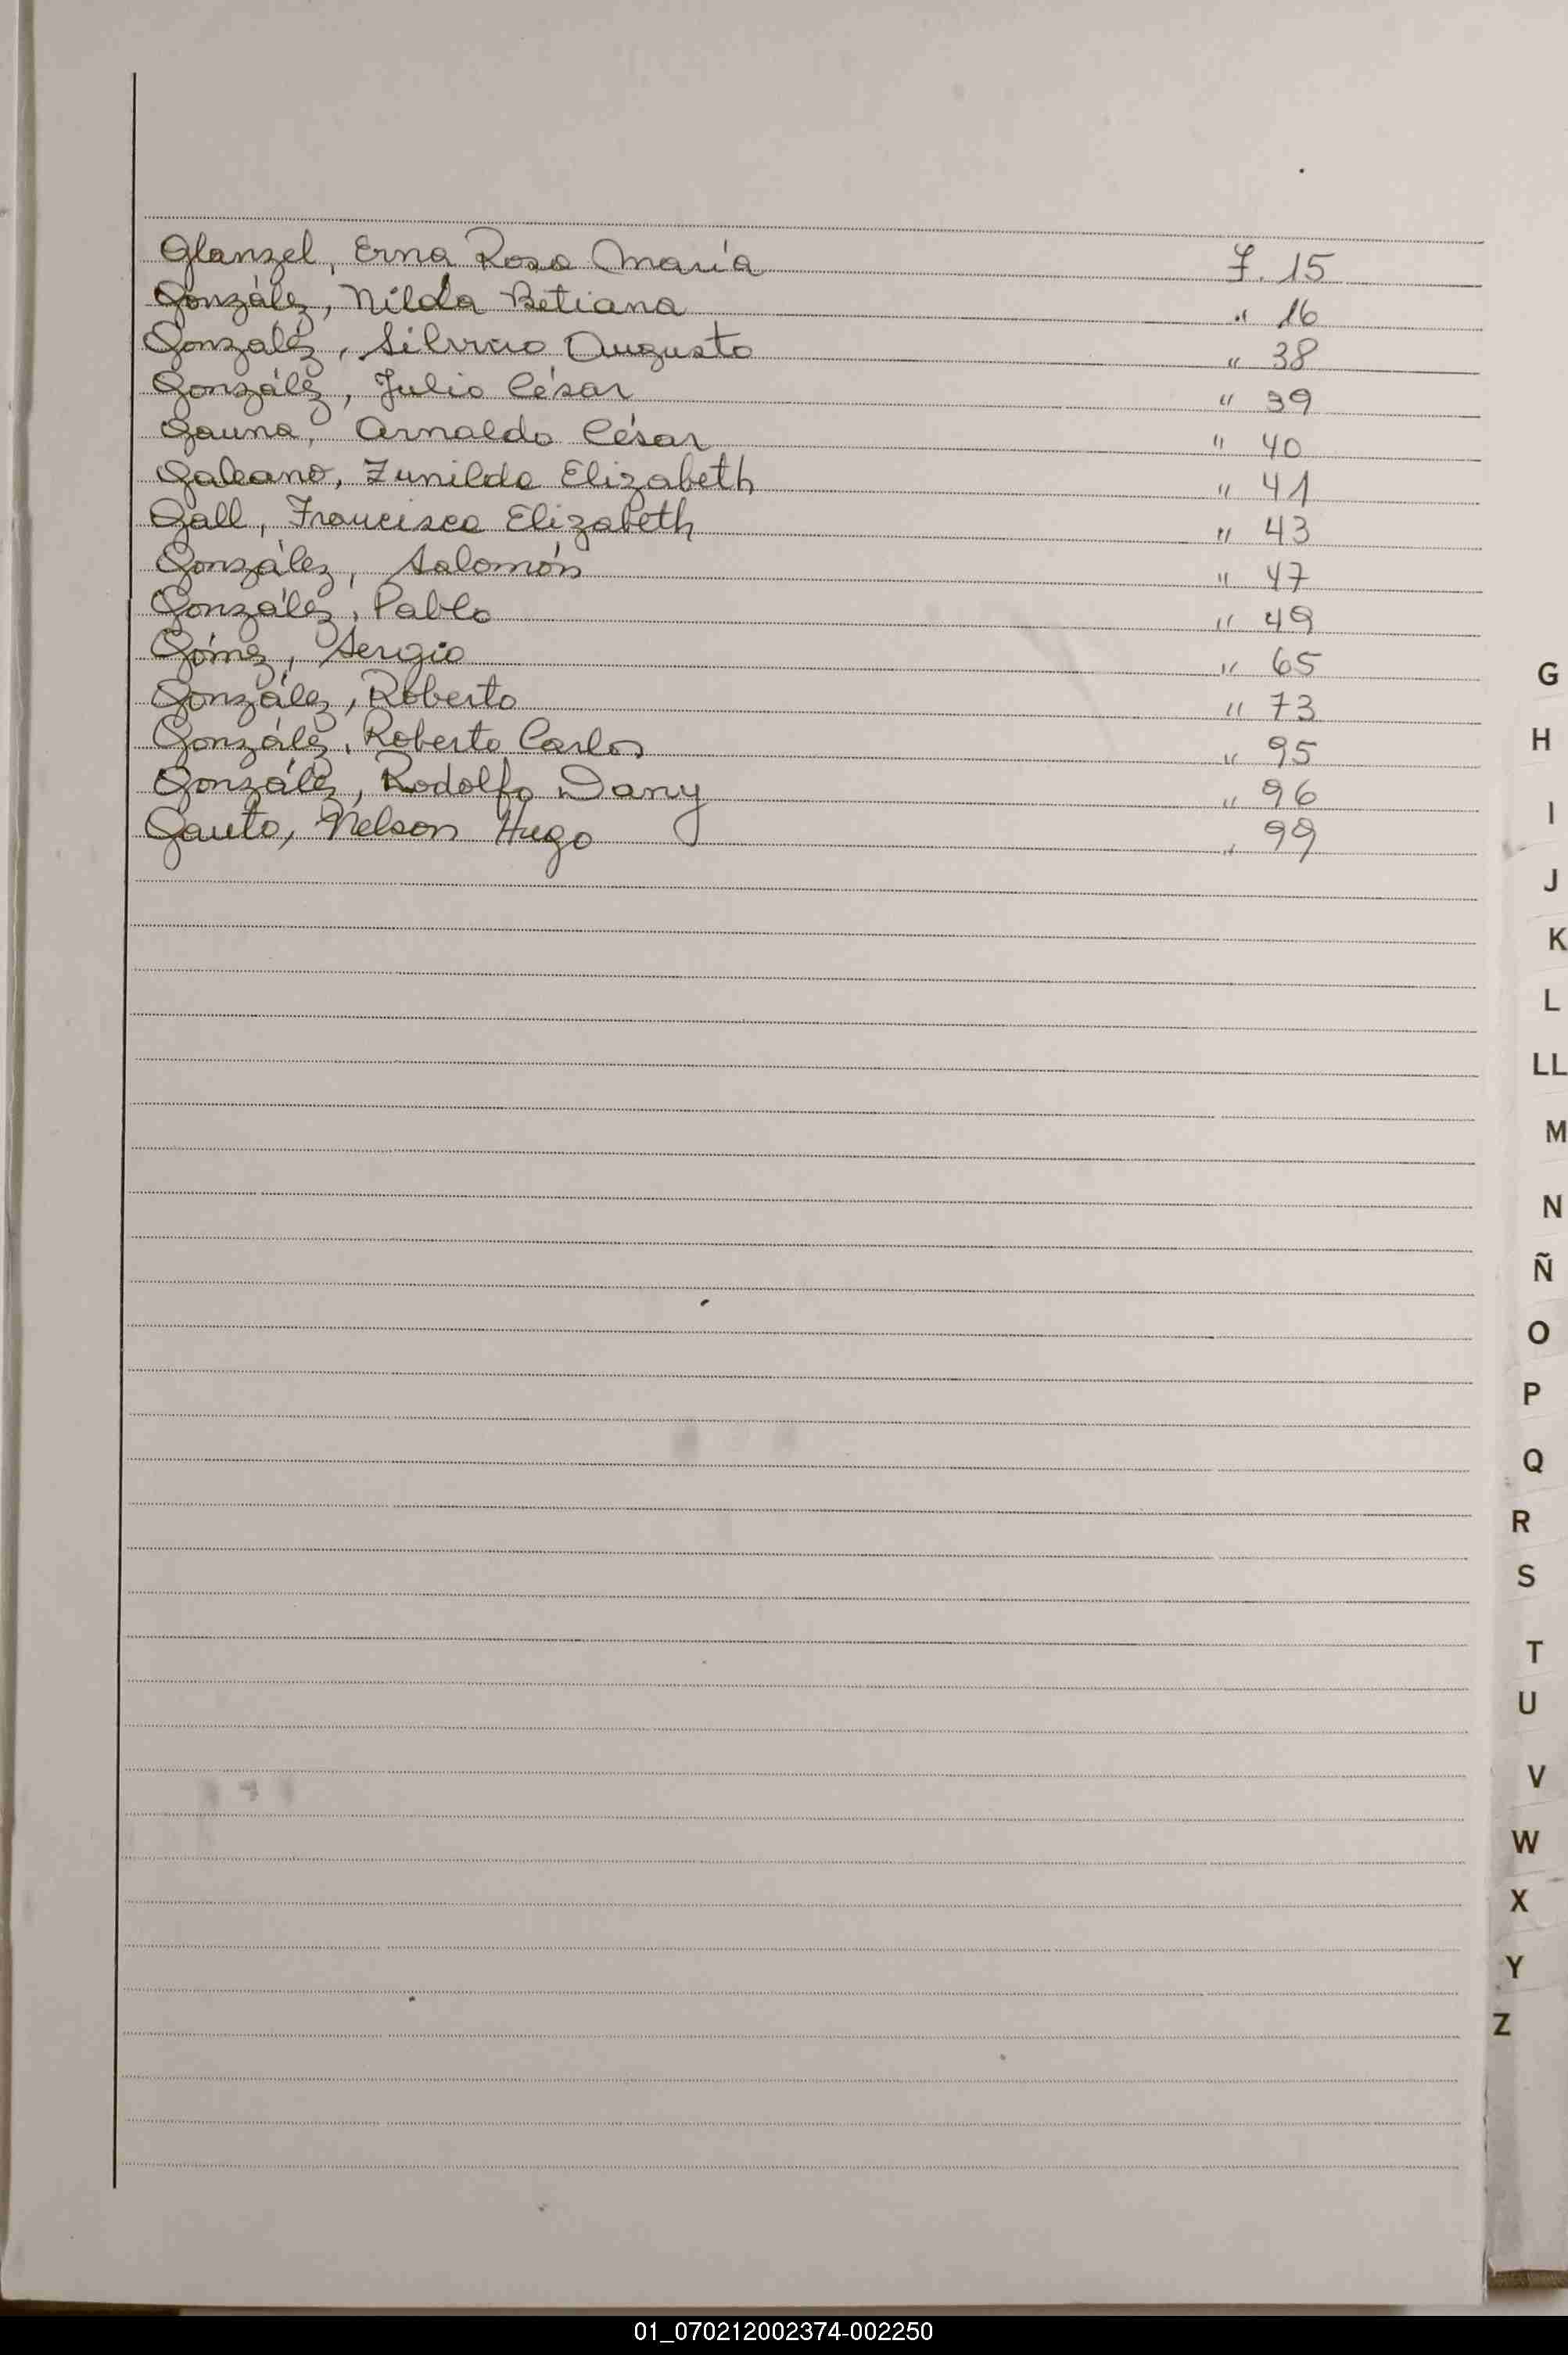 Glanzel, Erna Rosa María F. 15
González, Nilda Betiana " 16
González, Silverio Augusto " 38
González, Julio César " 39
Gauna, Arnaldo César " 40
Galeano, Zunilda Elizabeth " 41
Gall, Francisca Elizabeth " 43
González, Salomón " 47
González, Pablo " 49
Gómez, Sergio " 65
González, Roberto " 73
González, Roberto Carlos " 95
González, Rodolfo Dany " 96
Gauto, Nelson Hugo " 99
G
H
I
J
K
L
LL
M
N
Ñ
O
P
Q
R
S
T
U
V
W
X
Y
Z
01_070212002374-002250